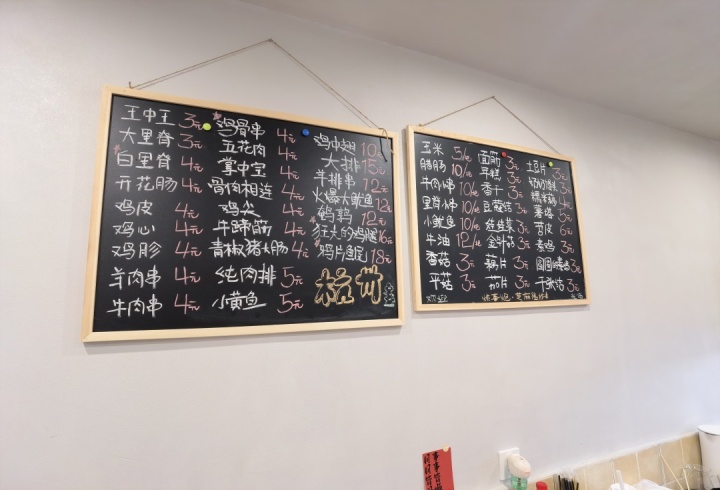 王中王 3元
大里脊 3元
白里脊 4元
开花肠 4元
鸡皮 4元
鸡心 4元
鸡胗 4元
羊肉串 4元
牛肉串 4元
鸡骨串 4元
五花肉 4元
掌中宝 4元
骨肉相连 4元
鸡尖 4元
牛蹄筋 4元
青椒猪大肠 4元
纯肉排 5元
小黄鱼 5元
鸡中翅 10元
大排 15元
羊排串 12元
火爆大鱿鱼 12元
鹌鹑 12元
狂火的鸡腿 16元
鸡片鱼尾 18元
杭州
玉米 5/
肠 10/
牛肉小串 10/
里脊小串 10/
小鱿鱼 10/
牛油 12/
香菇 3元
平菇 3元
面筋 3元
年糕 3元
香干 3元
豆腐结 3元
娃娃菜 3元
金针菇 3元
藕片 3元
茄片 3元
土豆片 3元
3元
4元
薯塔 5元
苕皮 5元
素鸡 3元
3元
千张结 3元